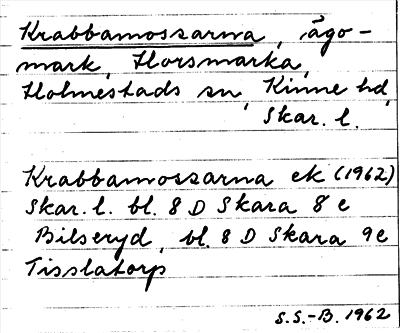 Krabbamossarna, ägo-
mark, Horsmarka,
Holmestads sn, Kinne hd,
Skar. l.
Krabbamossarna ek (1962)
Skar. l. bl. 8 D Skara 8 e
Bilseryd, bl. 8 D Skara 9e
Tisslatorp
S.S.-B. 1962